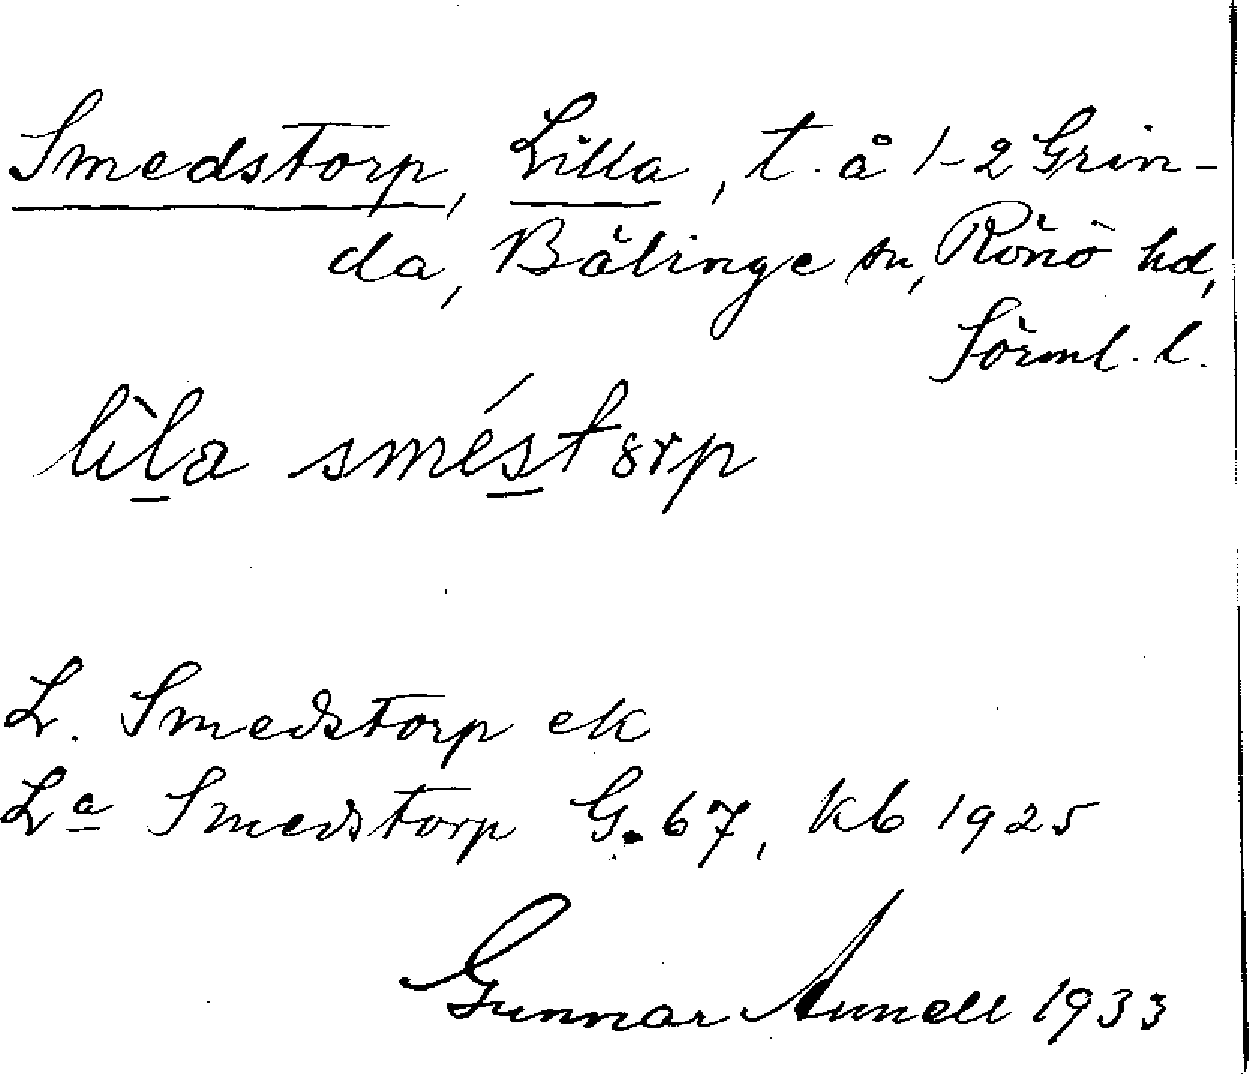 Smedstorp, Lilla, t. å 1-2 Grin-
da, Bälinge sn, Rönö hd,
Sörml. l.
lìla sméstɷrp
L. Smedstorp ek
Lª Smedstorp G. 67, kb 1925
Gunnar Aunell 1933